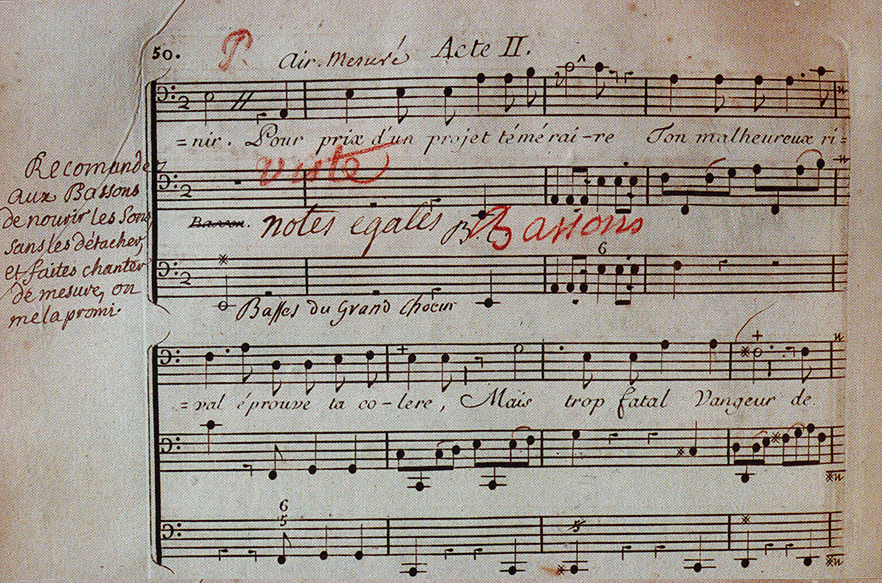 50. P. Air Mesuré Acte II.
2
=nir. Pour prix d'un projet témérai-re Ton malheureux ri-
viste
2
Recomander
aux Bassons
de nourir les Sons
sans les détacher,
et faites chanter
de mesure, on
me la promi.
Basson. notes egales B. C. Bassons
6
2
Basses du Grand Chœur
=val éprouve ta co-lere, Mais trop fatal Vangeur de
6
5
5